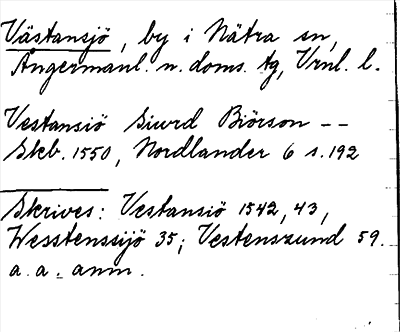 Västansjö, by i Nätra sn,
Ångermanl. n. doms. tg, Vrnl. l.
Vestansiö Siurd Biörson --
Skb. 1550, Nordlander 6 s. 192
Skrives: Vestansiö 1542, 43,
Wesstenssijö 35; Vestenssund 59.
a. a. anm.